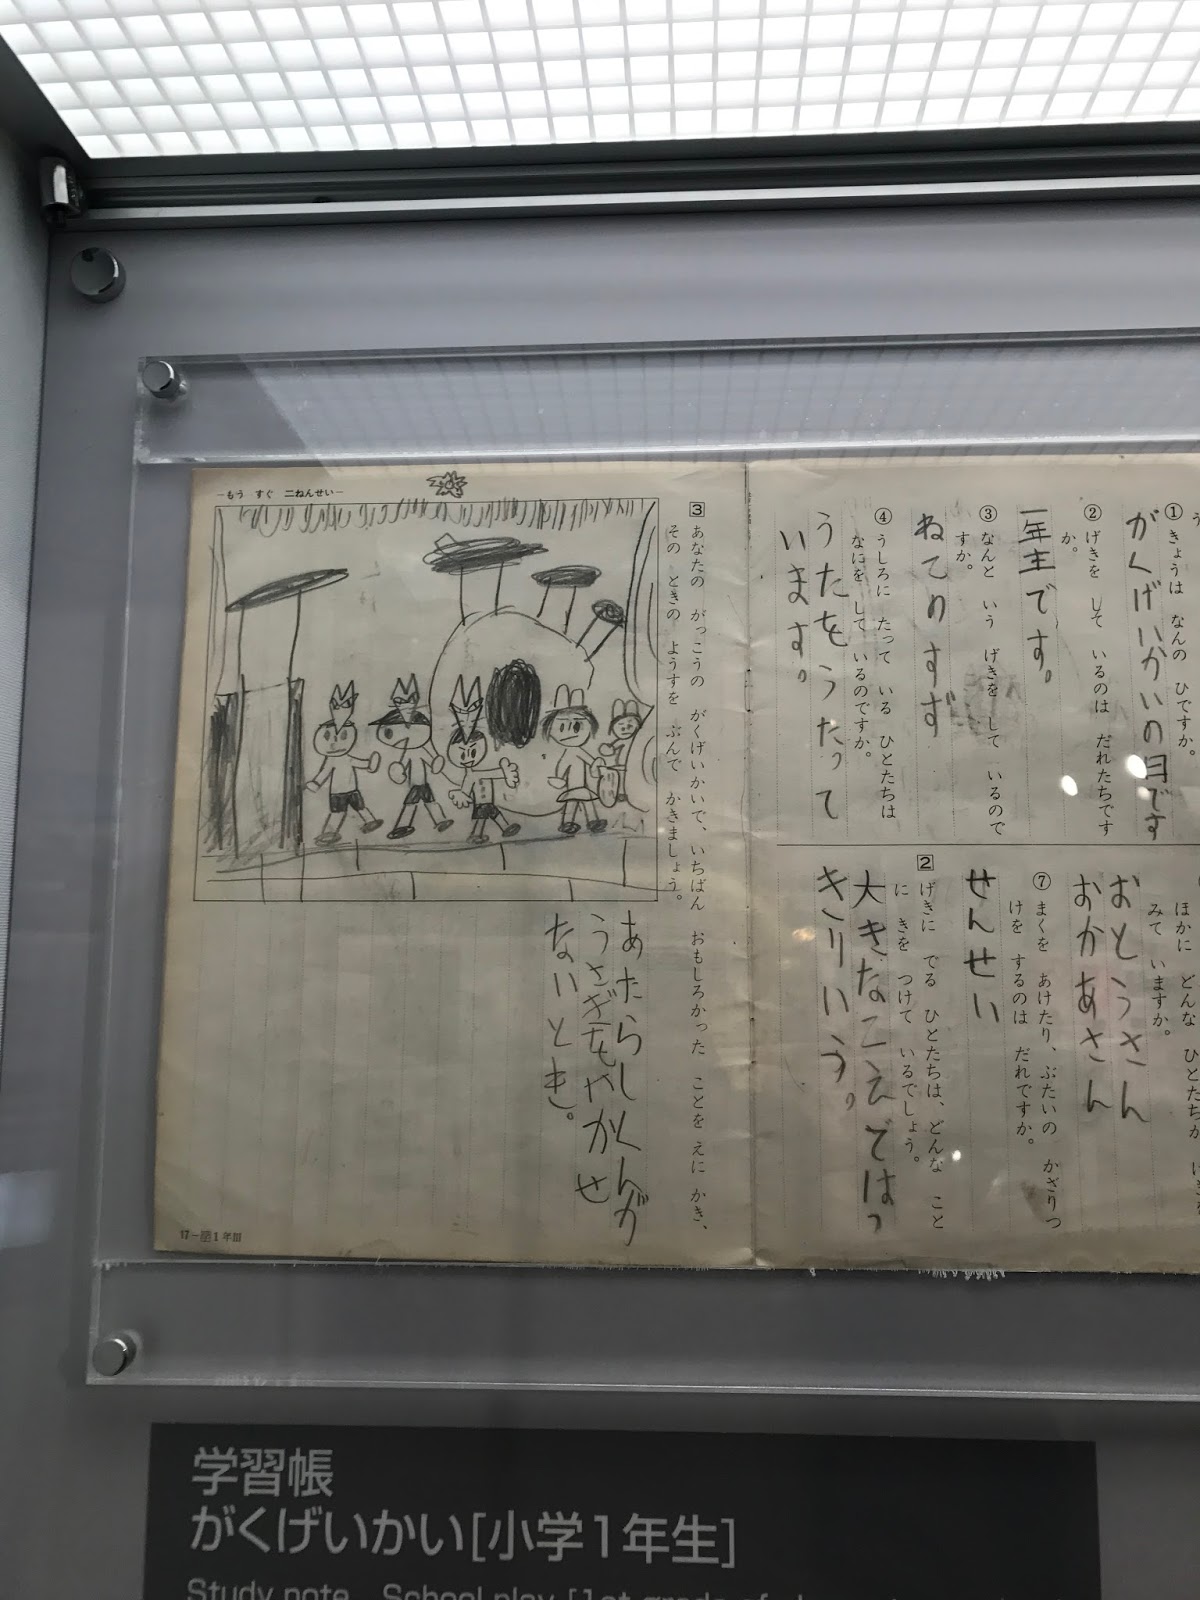 ①きょうは なんの ひですか。
がくげいかいの日です
②げきを して いるのは だれたちです
か。
一年生です。
③なんと いう げきを して いるので
すか。
ねてりすず
④うしろに たって いる ひとたちは
なにを して いるのですか。
うたをうたって
います。
ほかに どんな ひとたちが
みて いますか。
おとうさん
おかあさん
⑦まくを あけたり、ぶたいの かざりつ
けを するのは だれですか。
せんせい
2 げきに でる ひとたちは、どんな こと
に きを つけて いるでしょう。
大きなこえではっ
きりいう。
3 あなたの がっこうの がくげいかいで、いちばん おもしろかった ことを えに かき、
その ときの ようすを ぶんで かきましょう。
―もう すぐ 二ねんせい―
あたらしくんが
うさぎをやかせ
ないとき。
学習帳
がくげいかい[小学1年生]
Study note School play [1st grade of